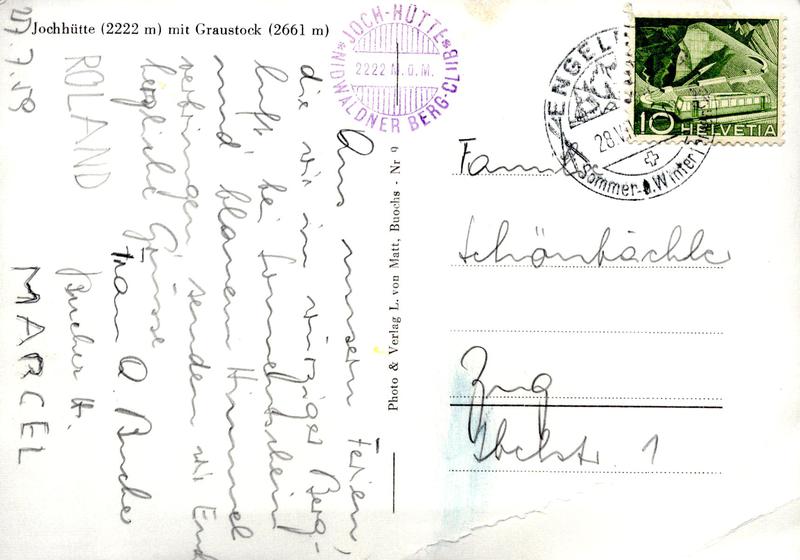 Jochhütte (2222 m) mit Graustock (2661 m)
JOCH-HÜTTE
2222 M.Ü.M.
NIDWALDNER BERG-CLUB
27.7.59
Aus unsern Ferien,
die wir in würziger Berg-
luft, bei Sonnenschein
und blauem Himmel
verbringen senden wir Euch
herzliche Grüsse
Fram A. Bucher
ROLAND
Bucher H.
MARCEL
Photo & Verlag L. von Matt, Buochs - Nr 9
ENGEL
28.VI
Sommer u. Winter
10 HELVETIA
Famil
Schönbächler
Zug
Ibelstr. 1